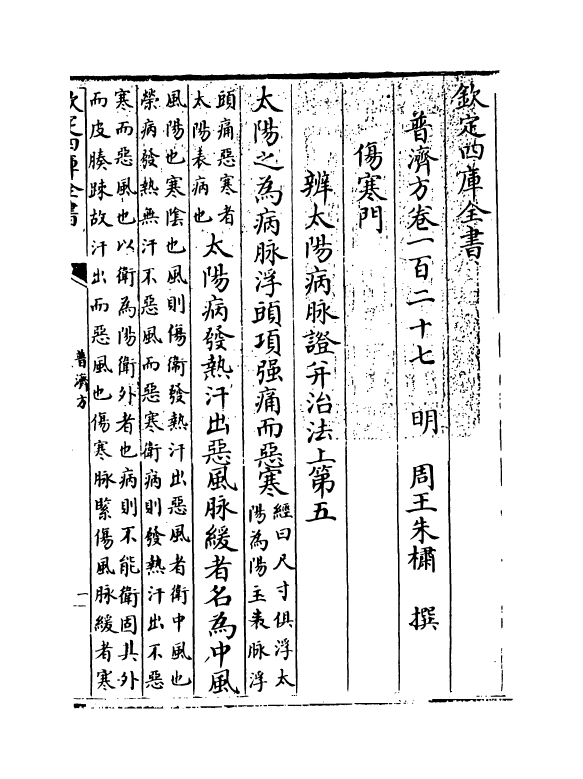 欽定四庫全書
普濟方卷一百二十七 明 周王朱橚 撰
傷寒門
辨太陽病脉證幷治法上第五
太陽之為病脉浮頭項强痛而惡寒
經曰尺寸俱浮太
陽為陽主表脉浮
頭痛惡寒者
太陽表病也
太陽病發熱汗出惡風脉緩者名為中風
風陽也寒陰也風則傷衛發熱汗出惡風者衛中風也
榮病發熱無汗不惡風而惡寒衛病則發熱汗出不惡
寒而惡風也以衛為陽衛外者也病則不能衛固其外
而皮腠踈故汗出而惡風也傷寒脉緊傷風脉緩者寒
欽定四庫全書
普濟方
一